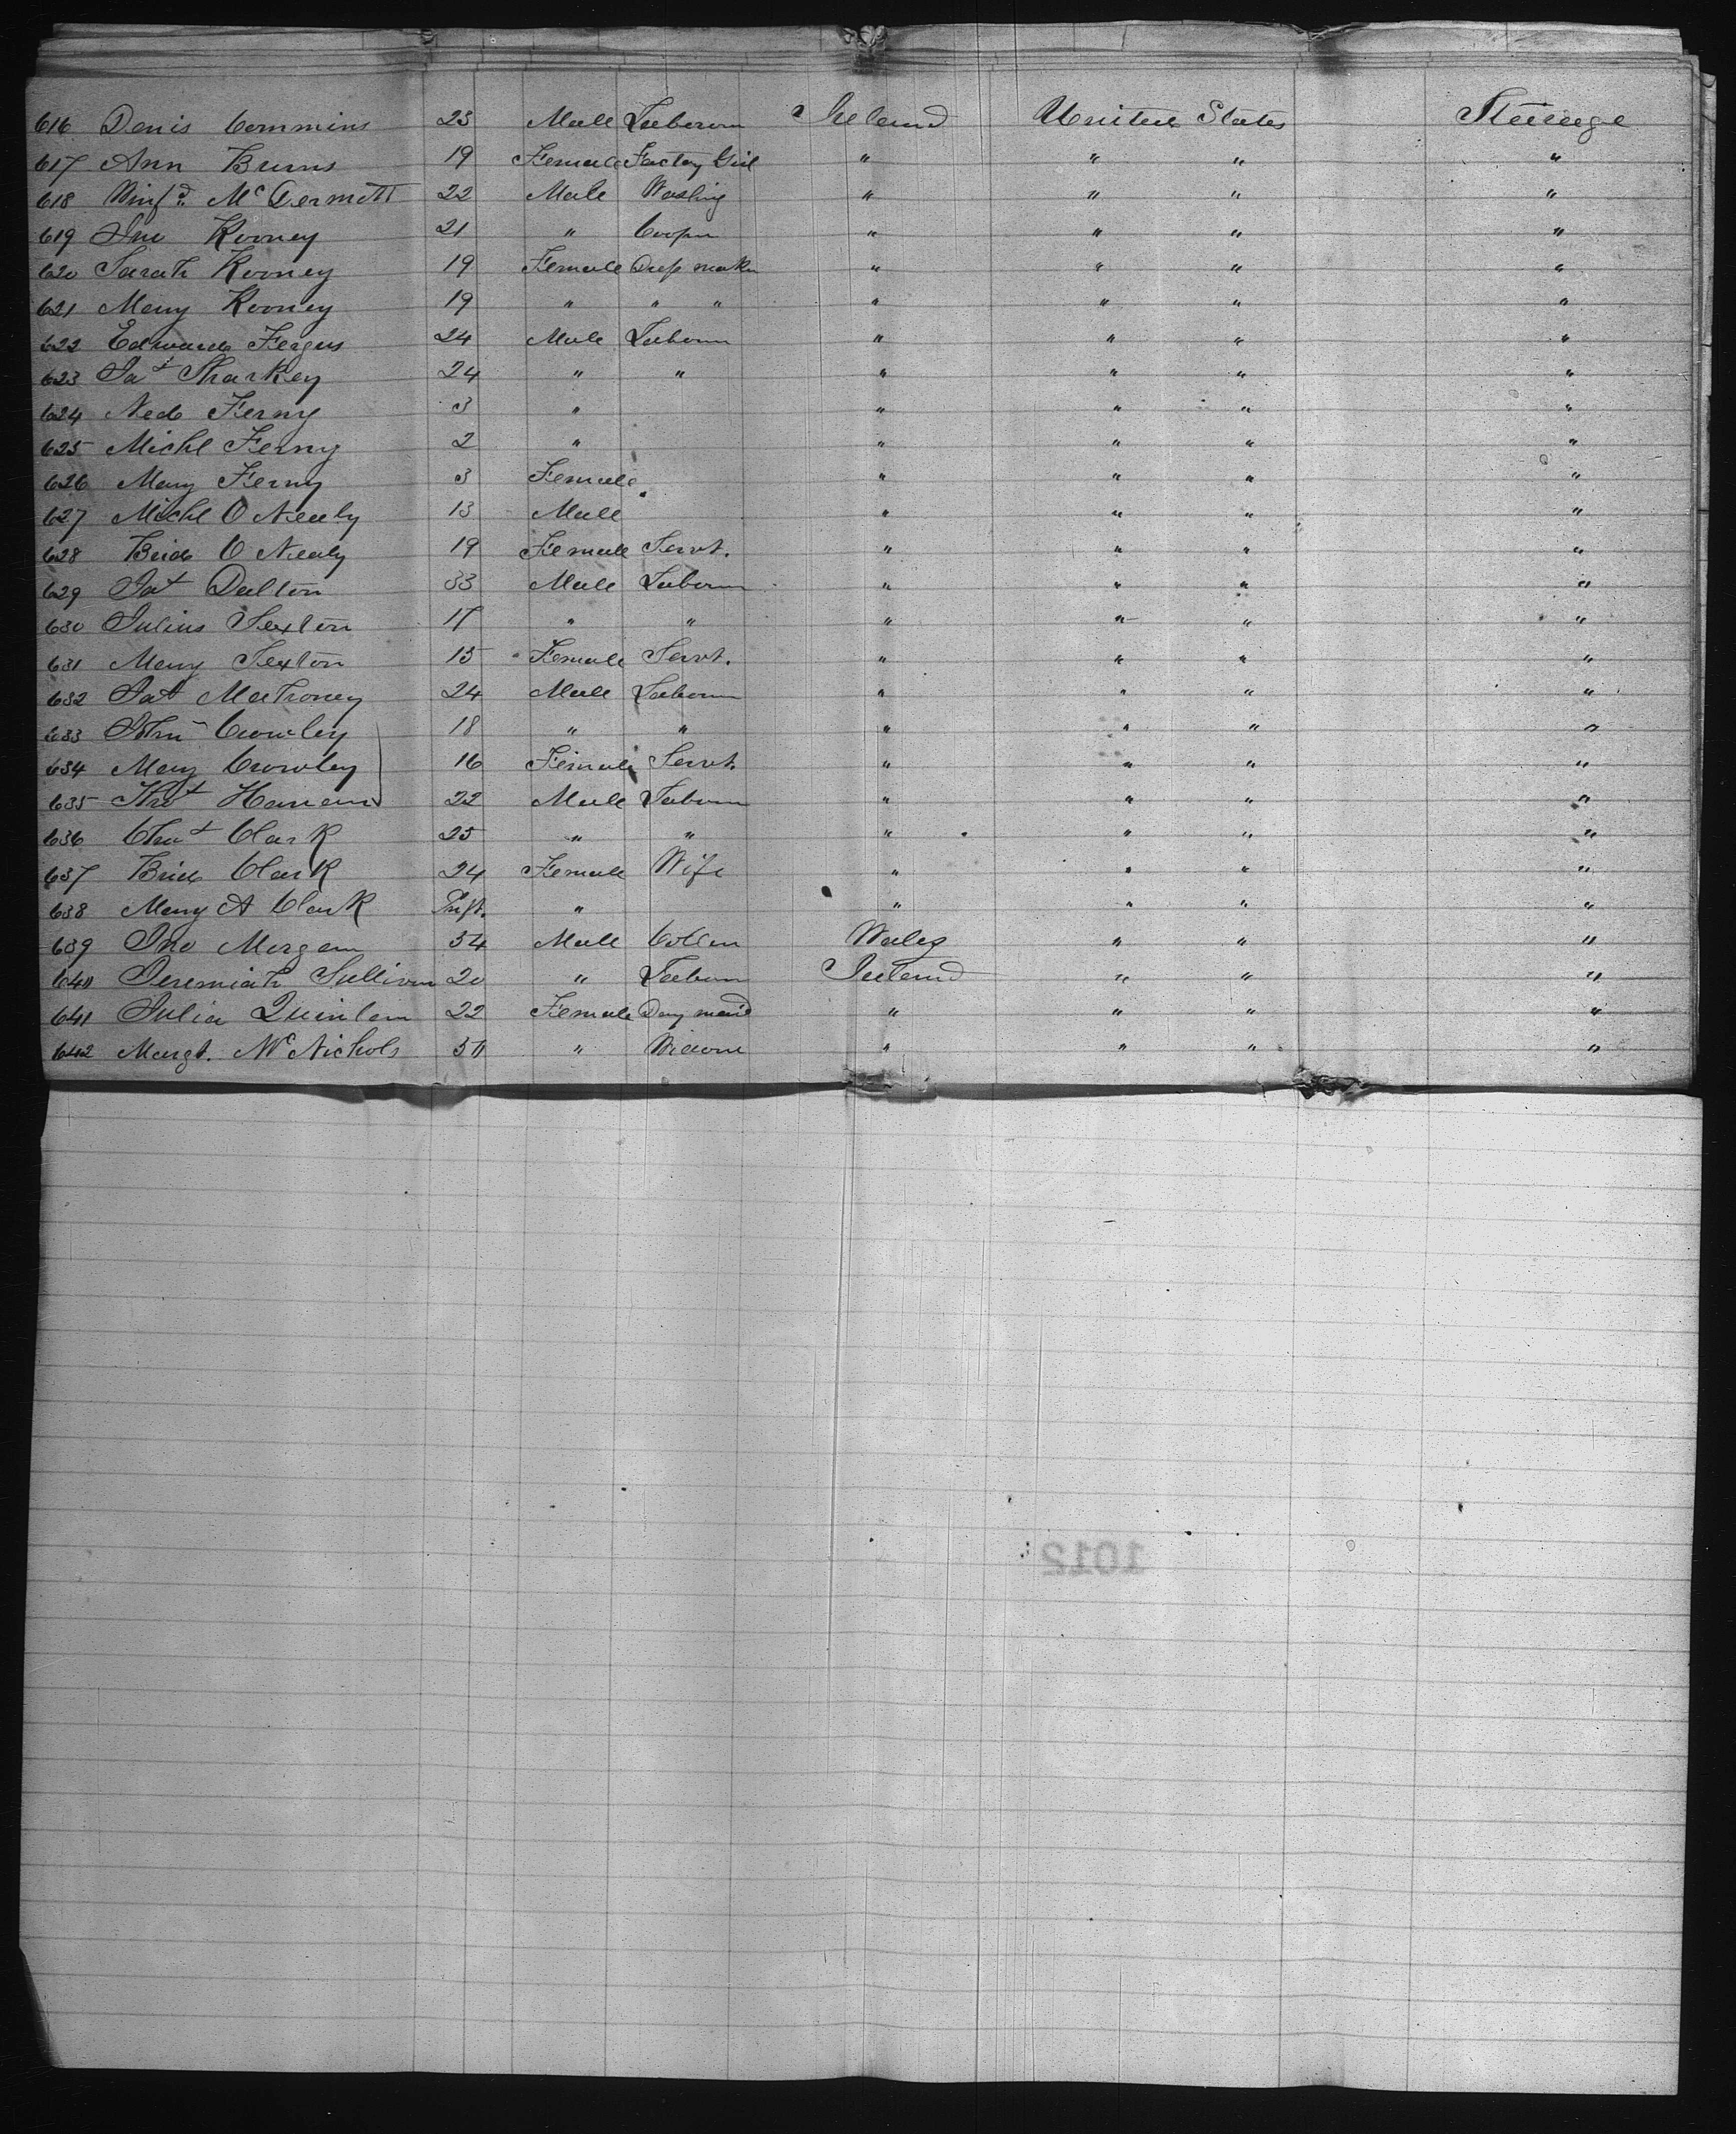 616 Denis Commins 23 Male Laborer Ireland United States Steerage
617 Ann Burns 19 Female Factory Girl " " " "
618 Winfd. McDermott 22 Male " " " "
619 Jno Rooney 21 " Cooper " " " "
620 Sarah Rooney 19 Female Dress maker " " " "
621 Mary Rooney 19 " " " " " " "
622 Edward Fergus 24 Male Laborer " " " "
623 Pat Sharkey 24 " " " " " "
624 Ned Ferny 3 " " " " "
625 Michl Ferny 2 " " " " "
626 Mary Ferny 3 Female " " " "
627 Michl O Nealy 13 Male " " " "
628 Brid O Nealy 19 Female Servt. " " " "
629 Pat Dalton 33 Male Laborer " " " "
630 Julius Sexton 17 " " " " " "
631 Mary Sexton 15 Female Servt. " " " "
632 Pat Mahoney 24 Male Laborer " " " "
633 John Crowley 18 " " " " " "
634 Mary Crowley 16 Female Servt. " " " "
635 22 Male Laborer " " " "
636 Clark 25 " " " " " "
637 Brid Clark 24 Female Wife " " " "
638 Mary A Clark Inft. " " " " "
639 Jno Morgan 34 Male Wales " " "
640 Jeremiah Sullivan 20 " Laborer Ireland " " "
641 Julia Quinlan 22 Female Dairy maid " " " "
642 Margt. McNichols 50 " " " " "
1012